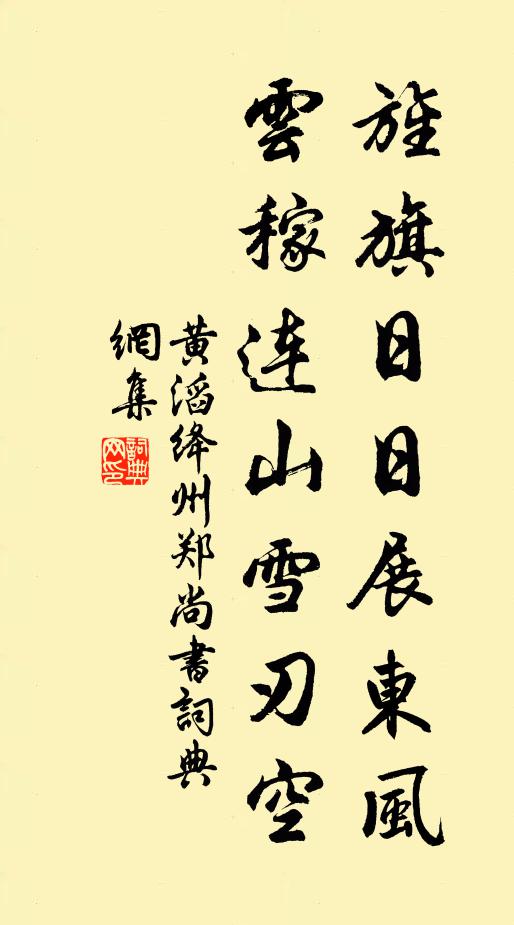 旌旗日日展東風
雲稼连山雪刃空
黄滔绛州郑尚書詞典
網集
詞典網印